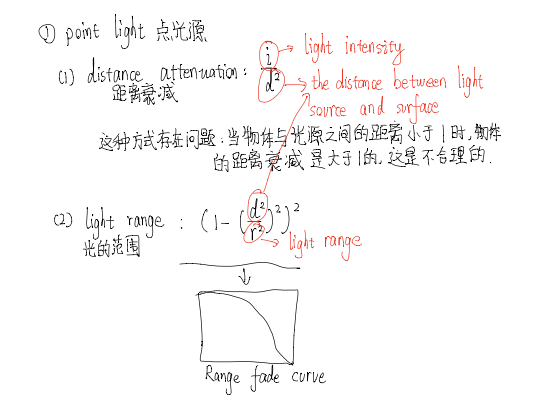 ① point light 点光源
(1) distance attenuation: i/d² → light intensity
距离衰减 → the distance between light
source and surface
这种方式存在问题:当物体与光源之间的距离小于1时,物体
的距离衰减是大于1的,这是不合理的.
(2) light range : (1-(d²/r²)²)²
光的范围 → light range
↓
Range fade curve